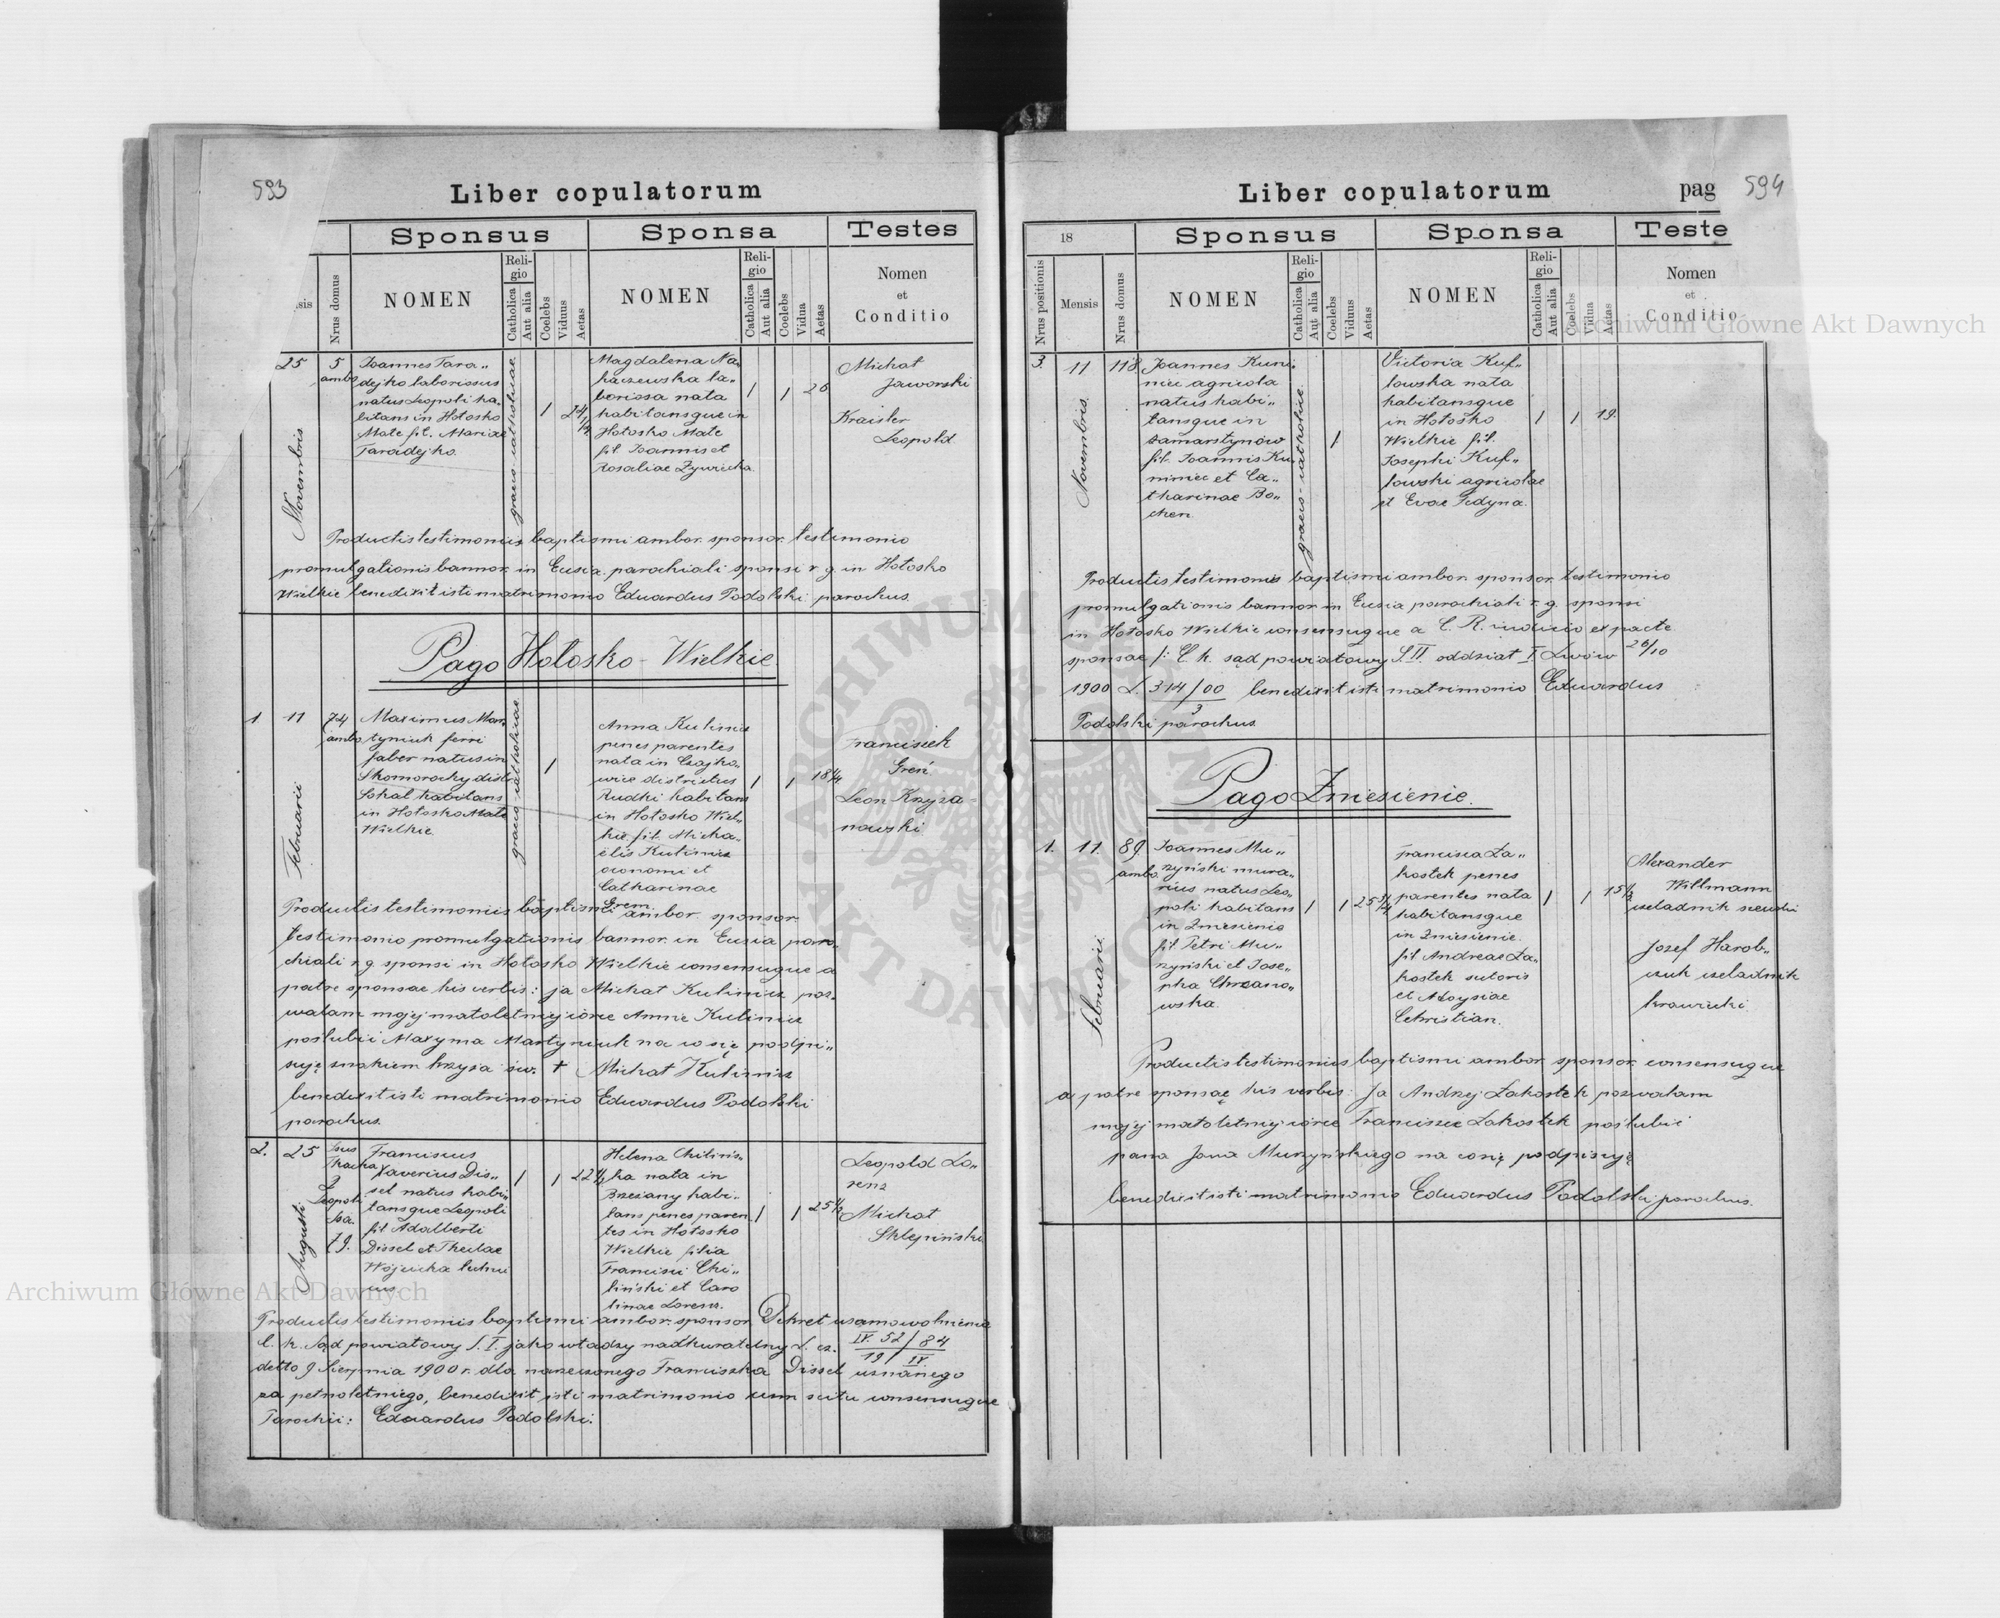 593
Liber copulatorum
Sponsus
Sponsa
Testes
Nrus domus
NOMEN
Religio
Catholica
Aut alia
Coelebs
Viduus
Aetas
NOMEN
Religio
Catholica
Aut alia
Coelebs
Vidua
Aetas
Nomen
et
Conditio
25
Novembris
5
ambo
Joannes Tara„
dejko laboriosus
natus Leopoli ha„
bitans in Hołosko
Małe fil. Mariae
Taradejko.
graeco-catholicae
1
24
Magdalena Na„
haczewska la„
boriosa nata
habitansque in
Hołosko Małe
fil. Joannis et
Rosaliae Żywicka
1
1
26
Michał
Jaworski
Kraisler
Leopold
Productis testimoniis baptismi ambor. sponsor. testimonio
promulgationis bannor. in Eccsia parochiali sponsi r. g. in Hołosko
Wielkie benedixit isti matrimonio Eduardus Podolski parochus.
Pago Hołosko-Wielkie
1
11
Februarii
74
ambo
Maximus Mar„
tyniuk ferri
faber natus in
Skomorochy distr.
Sokal habitans
in Hołosko Małe
Wielkie
graeco catholicae
1
Anna Kulinicz
penes parentes
nata in Czajko„
wice districtus
Rudki habitans
in Hołosko Wiel„
kie fil. Micha„
elis Kulinicz
oeconomi et
Catharinae
Grem.
1
1
18 1/4
Franciszek
Greń
Leon Krzyża-
nowski
Productis testimoniis baptismi ambor. sponsor.
testimonio promulgationis bannor. in Eccsia paro„
chiali r. g. sponsi in Hołosko Wielkie consensuque a
patre sponsae his verbis: ja Michał Kulinicz poz„
walam mojej małoletniej córce Annie Kulinicz
poślubić Maxyma Martyniuk na co się podpi„
suję znakiem krzyża św. + Michał Kulinicz
benedixit isti matrimonio Eduardus Podolski
parochus.
2.
25
Augusti
Leopoli
Franciscus
Xaverius Dis„
sel natus habi„
tansque Leopoli
fil. Adalberti
Dissel et Theclae
Wójcicka
1
1
22
Helena Chilińs„
ka nata in
Brzeżany habi„
tans penes paren
tes in Hołosko
Wielkie filia
Francisci Chi„
liński et Caro
linae Lorenz.
1
1
25 1/2
Leopold Lo„
renz
Michał
Sklepiński
Productis testimoniis baptismi ambor. sponsor. Dekret usamowolnienia
C. k. Sąd powiatowy S. I. jako władzy nadkuratelnej L. cz. IV. 52/84
19/IV.
detto 9 Sierpnia 1900 r. dla narzeczonego Franciszka Dissel uznanego
za pełnoletniego, benedixit isti matrimonio cum scitu consensuque
Parochii: Eduardus Podolski.
Liber copulatorum
pag 594
18
Sponsus
Sponsa
Teste
Nrus positionis
Mensis
Nrus domus
NOMEN
Religio
Catholica
Aut alia
Coelebs
Viduus
Aetas
NOMEN
Religio
Catholica
Aut alia
Coelebs
Vidua
Aetas
Nomen
et
Conditio
3.
11
Novembris
118
Joannes Kuni„
niec agricola
natus habi„
tansque in
Zamarstynów
fil. Joannis Ku„
niniec et Ca„
tharinae Bo„
chen.
graeco-catholicae
1
Victoria Kuf„
lowska nata
habitansque
in Hołosko
Wielkie fil.
Josephi Kuf„
lowski agricolae
et Evae Fedyna.
1
1
19.
Productis testimoniis baptismi ambor. sponsor. testimonio
promulgationis bannor. in Eccsia parochiali r. g. sponsi
in Hołosko Wielkie consensuque a C. R. iudicio ex parte
sponsae /: C. k. sąd powiatowy S. II. oddział I. Lwów 26/10
1900 L. 314/00
3
benedixit isti matrimonio Eduardus
Podolski parochus.
Pago Zniesienie.
1.
11.
Februarii
89
ambo
Joannes Mu„
rzyński mura„
rius natus Leo„
poli habitans
in Zniesienie
fil. Petri Mu„
rzyński et Jose„
pha Chrzano„
wska
1
1
25 3/4
Francisca Ła„
kostek penes
parentes nata
habitansque
in Zniesienie.
fil. Andreae Ła„
kostek sutoris
et Aloysiae
Christian.
1
1
15 1/2
Alexander
Willmann
czeladnik szewski
Józef Harob„
czuk czeladnik
krawiecki.
Productis testimoniis baptismi ambor. sponsor. consensuque
a patre sponsae his verbis: Ja Andrzej Łakostek pozwalam
mojej małoletniej córce Franciszce Łakostek poślubić
pana Jana Murzyńskiego na co się podpisuję
benedixit isti matrimonio Eduardus Podolski parochus.
Archiwum Główne Akt Dawnych
Archiwum Główne Akt Dawnych
ARCHIWUM GŁÓWNE AKT DAWNYCH